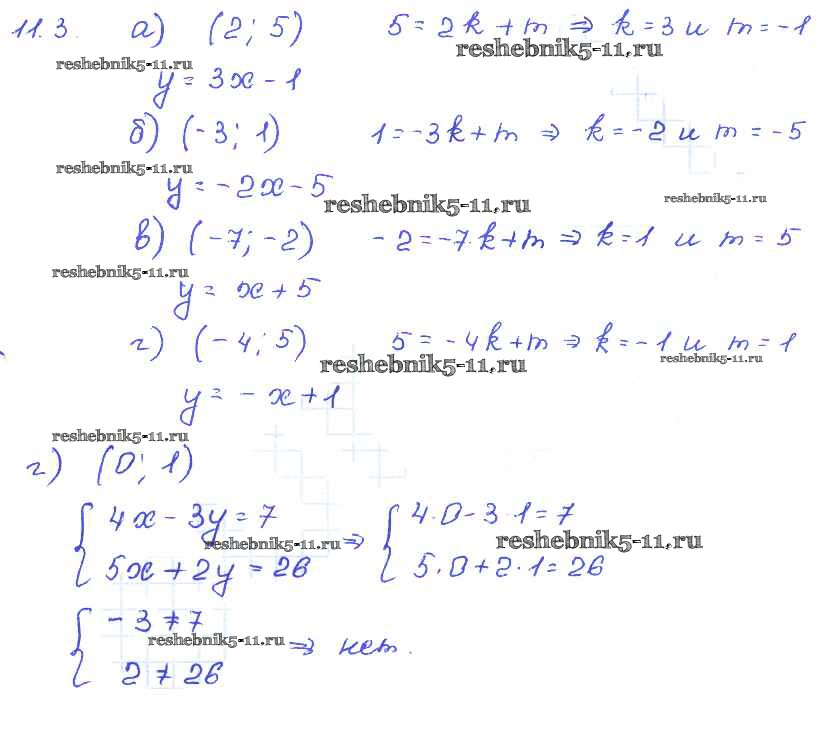 11.3. а) (2; 5) 5 = 2k + m ⇒ k = 3 и m = -1
reshebnik5-11.ru reshebnik5-11.ru
y = 3x - 1
б) (-3; 1) 1 = -3k + m ⇒ k = -2 и m = -5
reshebnik5-11.ru
y = -2x - 5
reshebnik5-11.ru reshebnik5-11.ru
в) (-7; -2) -2 = -7·k + m ⇒ k = 1 и m = 5
reshebnik5-11.ru
y = x + 5
г) (-4; 5) 5 = -4k + m ⇒ k = -1 и m = 1
reshebnik5-11.ru reshebnik5-11.ru
y = -x + 1
reshebnik5-11.ru
г) (0; 1)
{ 4x - 3y = 7 { 4·0 - 3·1 = 7
reshebnik5-11.ru ⇒ reshebnik5-11.ru
5x + 2y = 26 5·0 + 2·1 = 26
{ -3 ≠ 7
reshebnik5-11.ru ⇒ нет.
2 ≠ 26